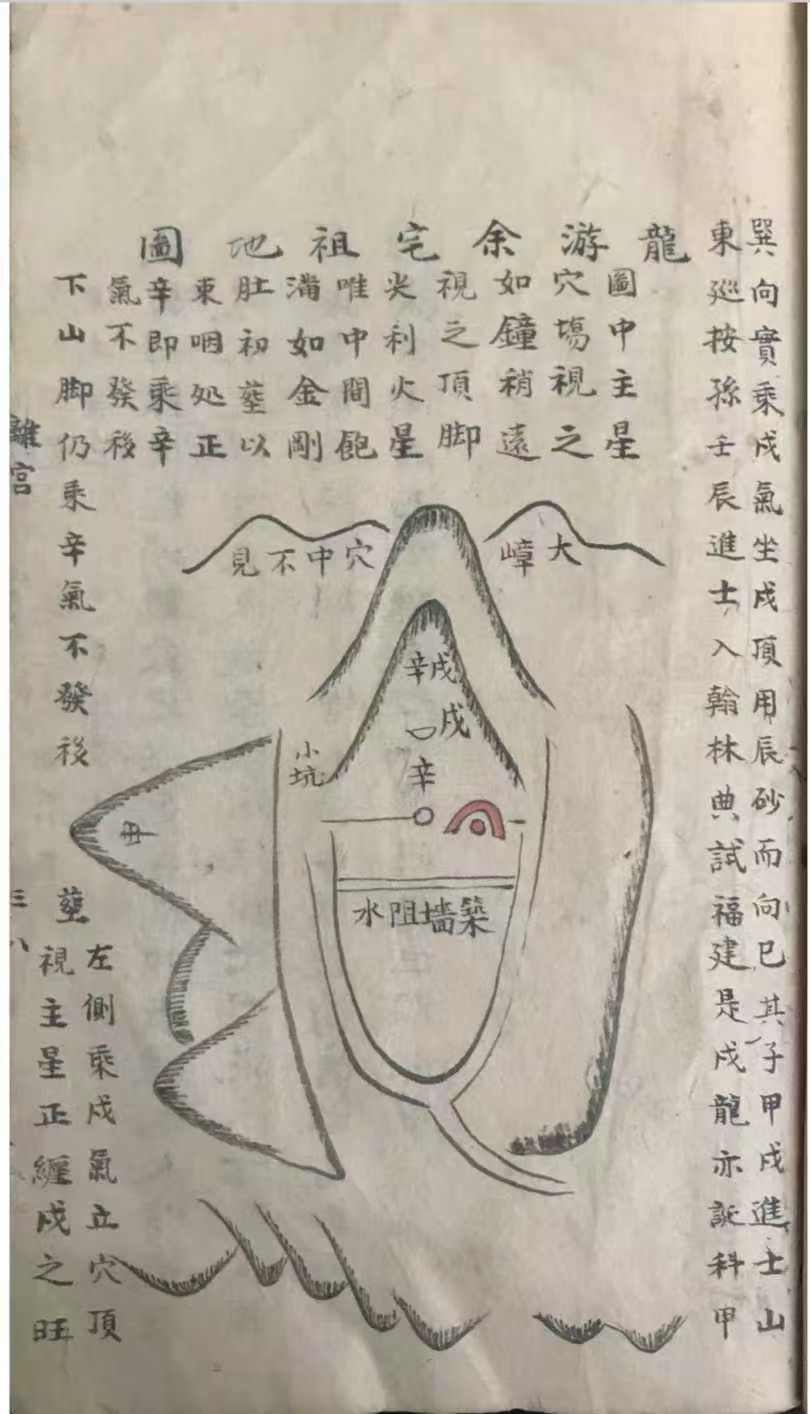 龍游余宅祖地圖
圖中主星
穴塲視之
如鐘稍遠
視之頂脚
尖利火星
唯中間飽
滿如金剛
肚初塟以
束咽处正
辛即乘辛
氣不發後
下山脚仍乘辛氣不發後塟
左側乘戍氣立穴頂
視主星正纏戍之旺
巽向實乘戍氣坐戍頂用辰砂而向巳其子甲戍進士山
東廵按孫壬辰進士入翰林典試福建是戍龍亦誕科甲
大嶂
穴中不見
戍
辛
戍
辛
小坑
甲
築墻阻水
離宮
三八